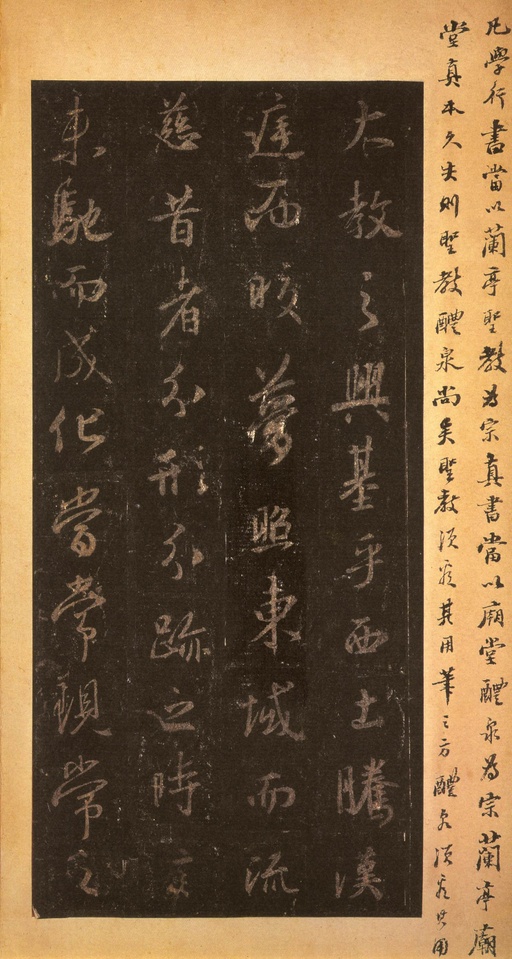 凡學行書當以蘭亭聖教為宗真書當以廟堂醴泉為宗蘭亭廟
堂真本久失則聖教醴泉尚矣聖教須看其用筆之方醴泉須看其用
大教之興基乎西土騰漢
庭而皎夢照東域而流
慈昔者分形分跡之時言
未馳而成化當常現常之